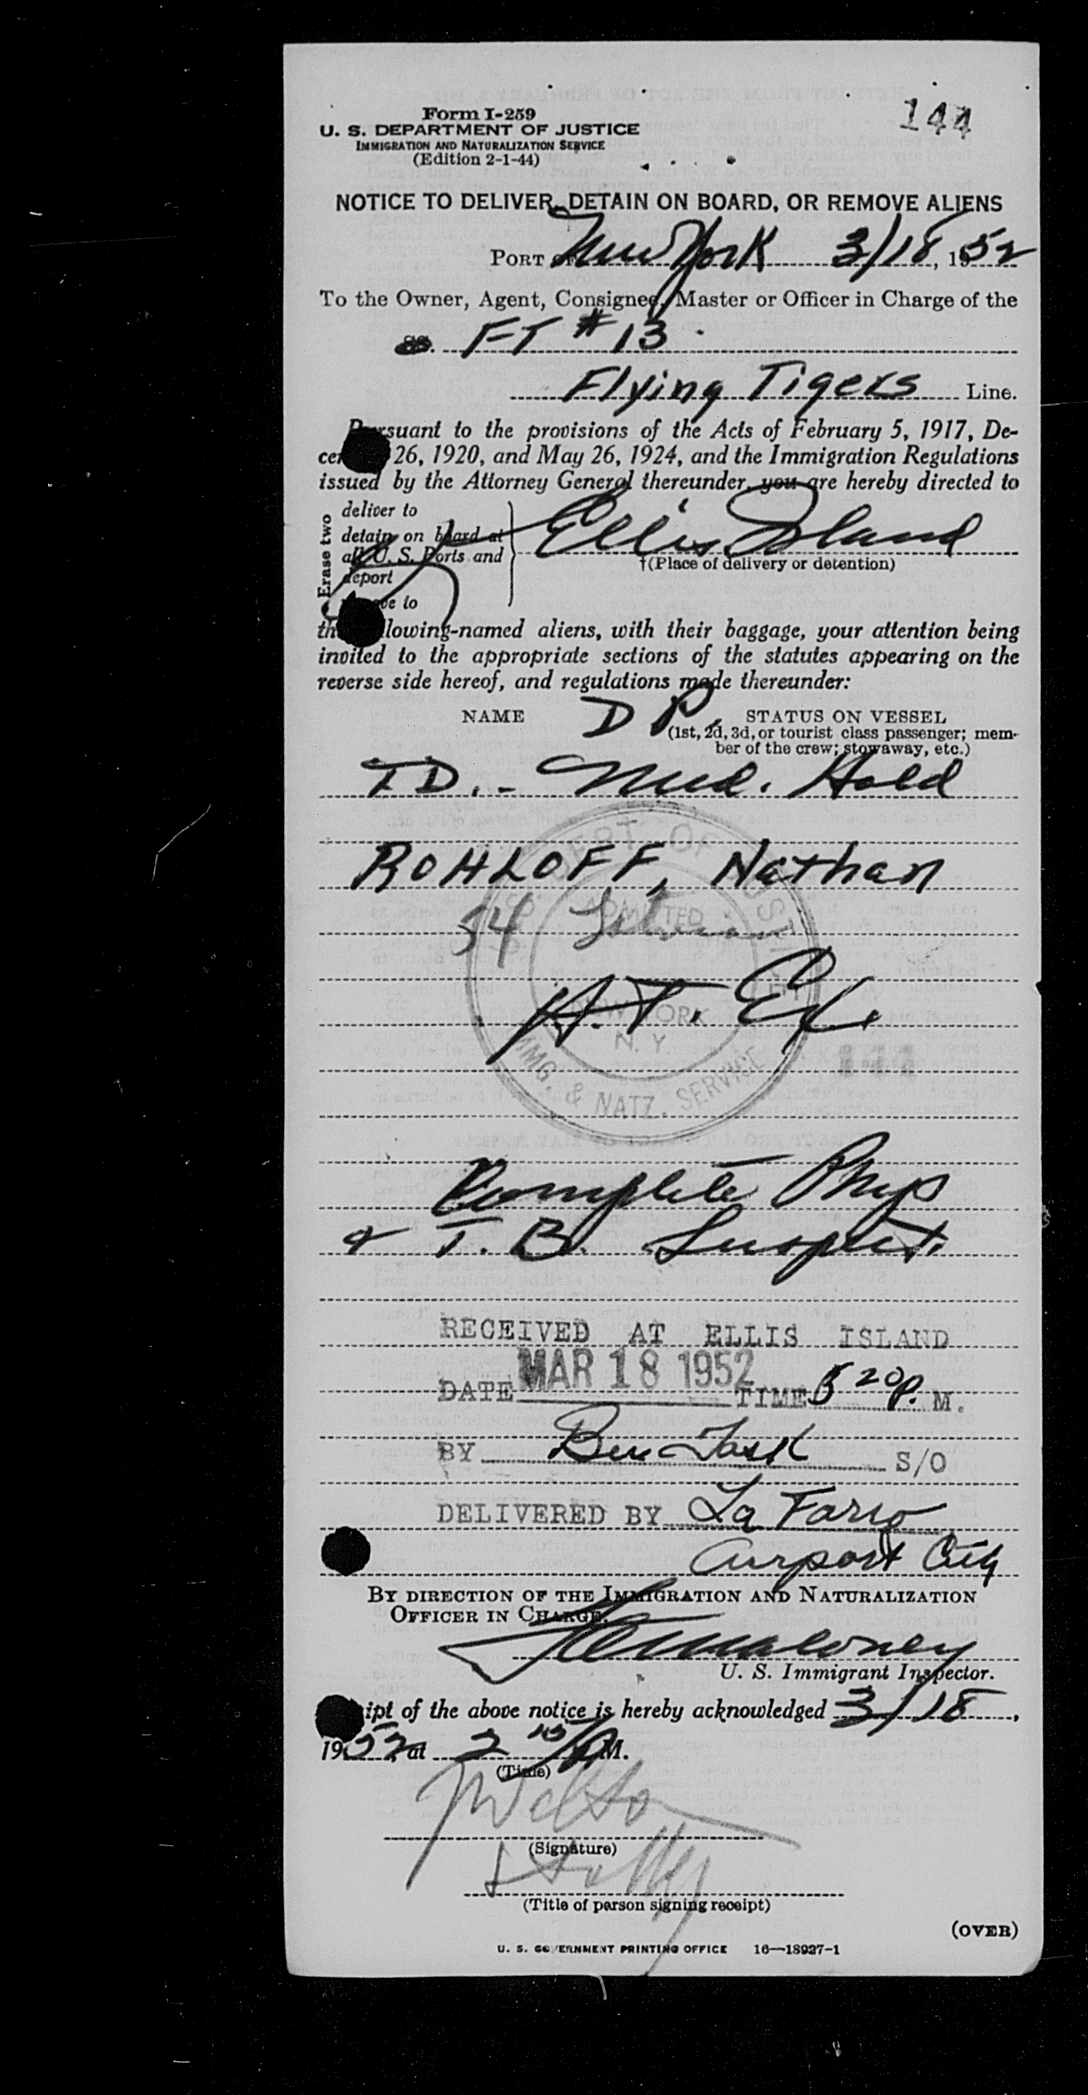 144
Form I-259
U. S. DEPARTMENT OF JUSTICE
IMMIGRATION AND NATURALIZATION SERVICE
(Edition 2-1-44)
NOTICE TO DELIVER, DETAIN ON BOARD, OR REMOVE ALIENS
PORT OF New York 3/18, 1952
To the Owner, Agent, Consignee, Master or Officer in Charge of the
SS. FT #13
Flying Tigers Line.
Pursuant to the provisions of the Acts of February 5, 1917, De-
26, 1920, and May 26, 1924, and the Immigration Regulations
issued by the Attorney General thereunder, you are hereby directed to
deliver to
detain on board at
all U. S. Ports and
deport
to
Erase two
Ellis Island
†(Place of delivery or detention)
the following-named aliens, with their baggage, your attention being
invited to the appropriate sections of the statutes appearing on the
reverse side hereof, and regulations made thereunder:
NAME DP STATUS ON VESSEL
(1st, 2d, 3d, or tourist class passenger; mem-
ber of the crew; stowaway, etc.)
T.D. - Med. Hold
ROHLOFF, Nathan
54
U.S. DEPT. OF JUSTICE
ADMITTED
NEW YORK
N. Y.
IMMG. & NATZ. SERVICE
H.T. Ex.
144
Complete Phys
& T. B. Suspect.
RECEIVED AT ELLIS ISLAND
DATE MAR 18 1952 TIME 5 20 P. M.
BY Ben S/O
DELIVERED BY La
Airport City
BY DIRECTION OF THE IMMIGRATION AND NATURALIZATION
OFFICER IN CHARGE.
Maloney
U. S. Immigrant Inspector.
Receipt of the above notice is hereby acknowledged 3/18,
1952 at 2 15/P M.
(Time)
(Signature)
(Title of person signing receipt)
(OVER)
U. S. GOVERNMENT PRINTING OFFICE 16—18927-1